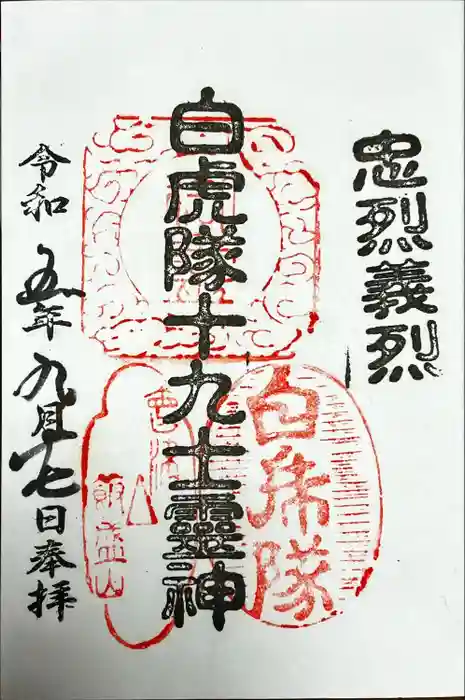 忠烈義烈
白虎隊十九士靈神
白虎隊
会津
飯盛山
令和五年九月十七日奉拝